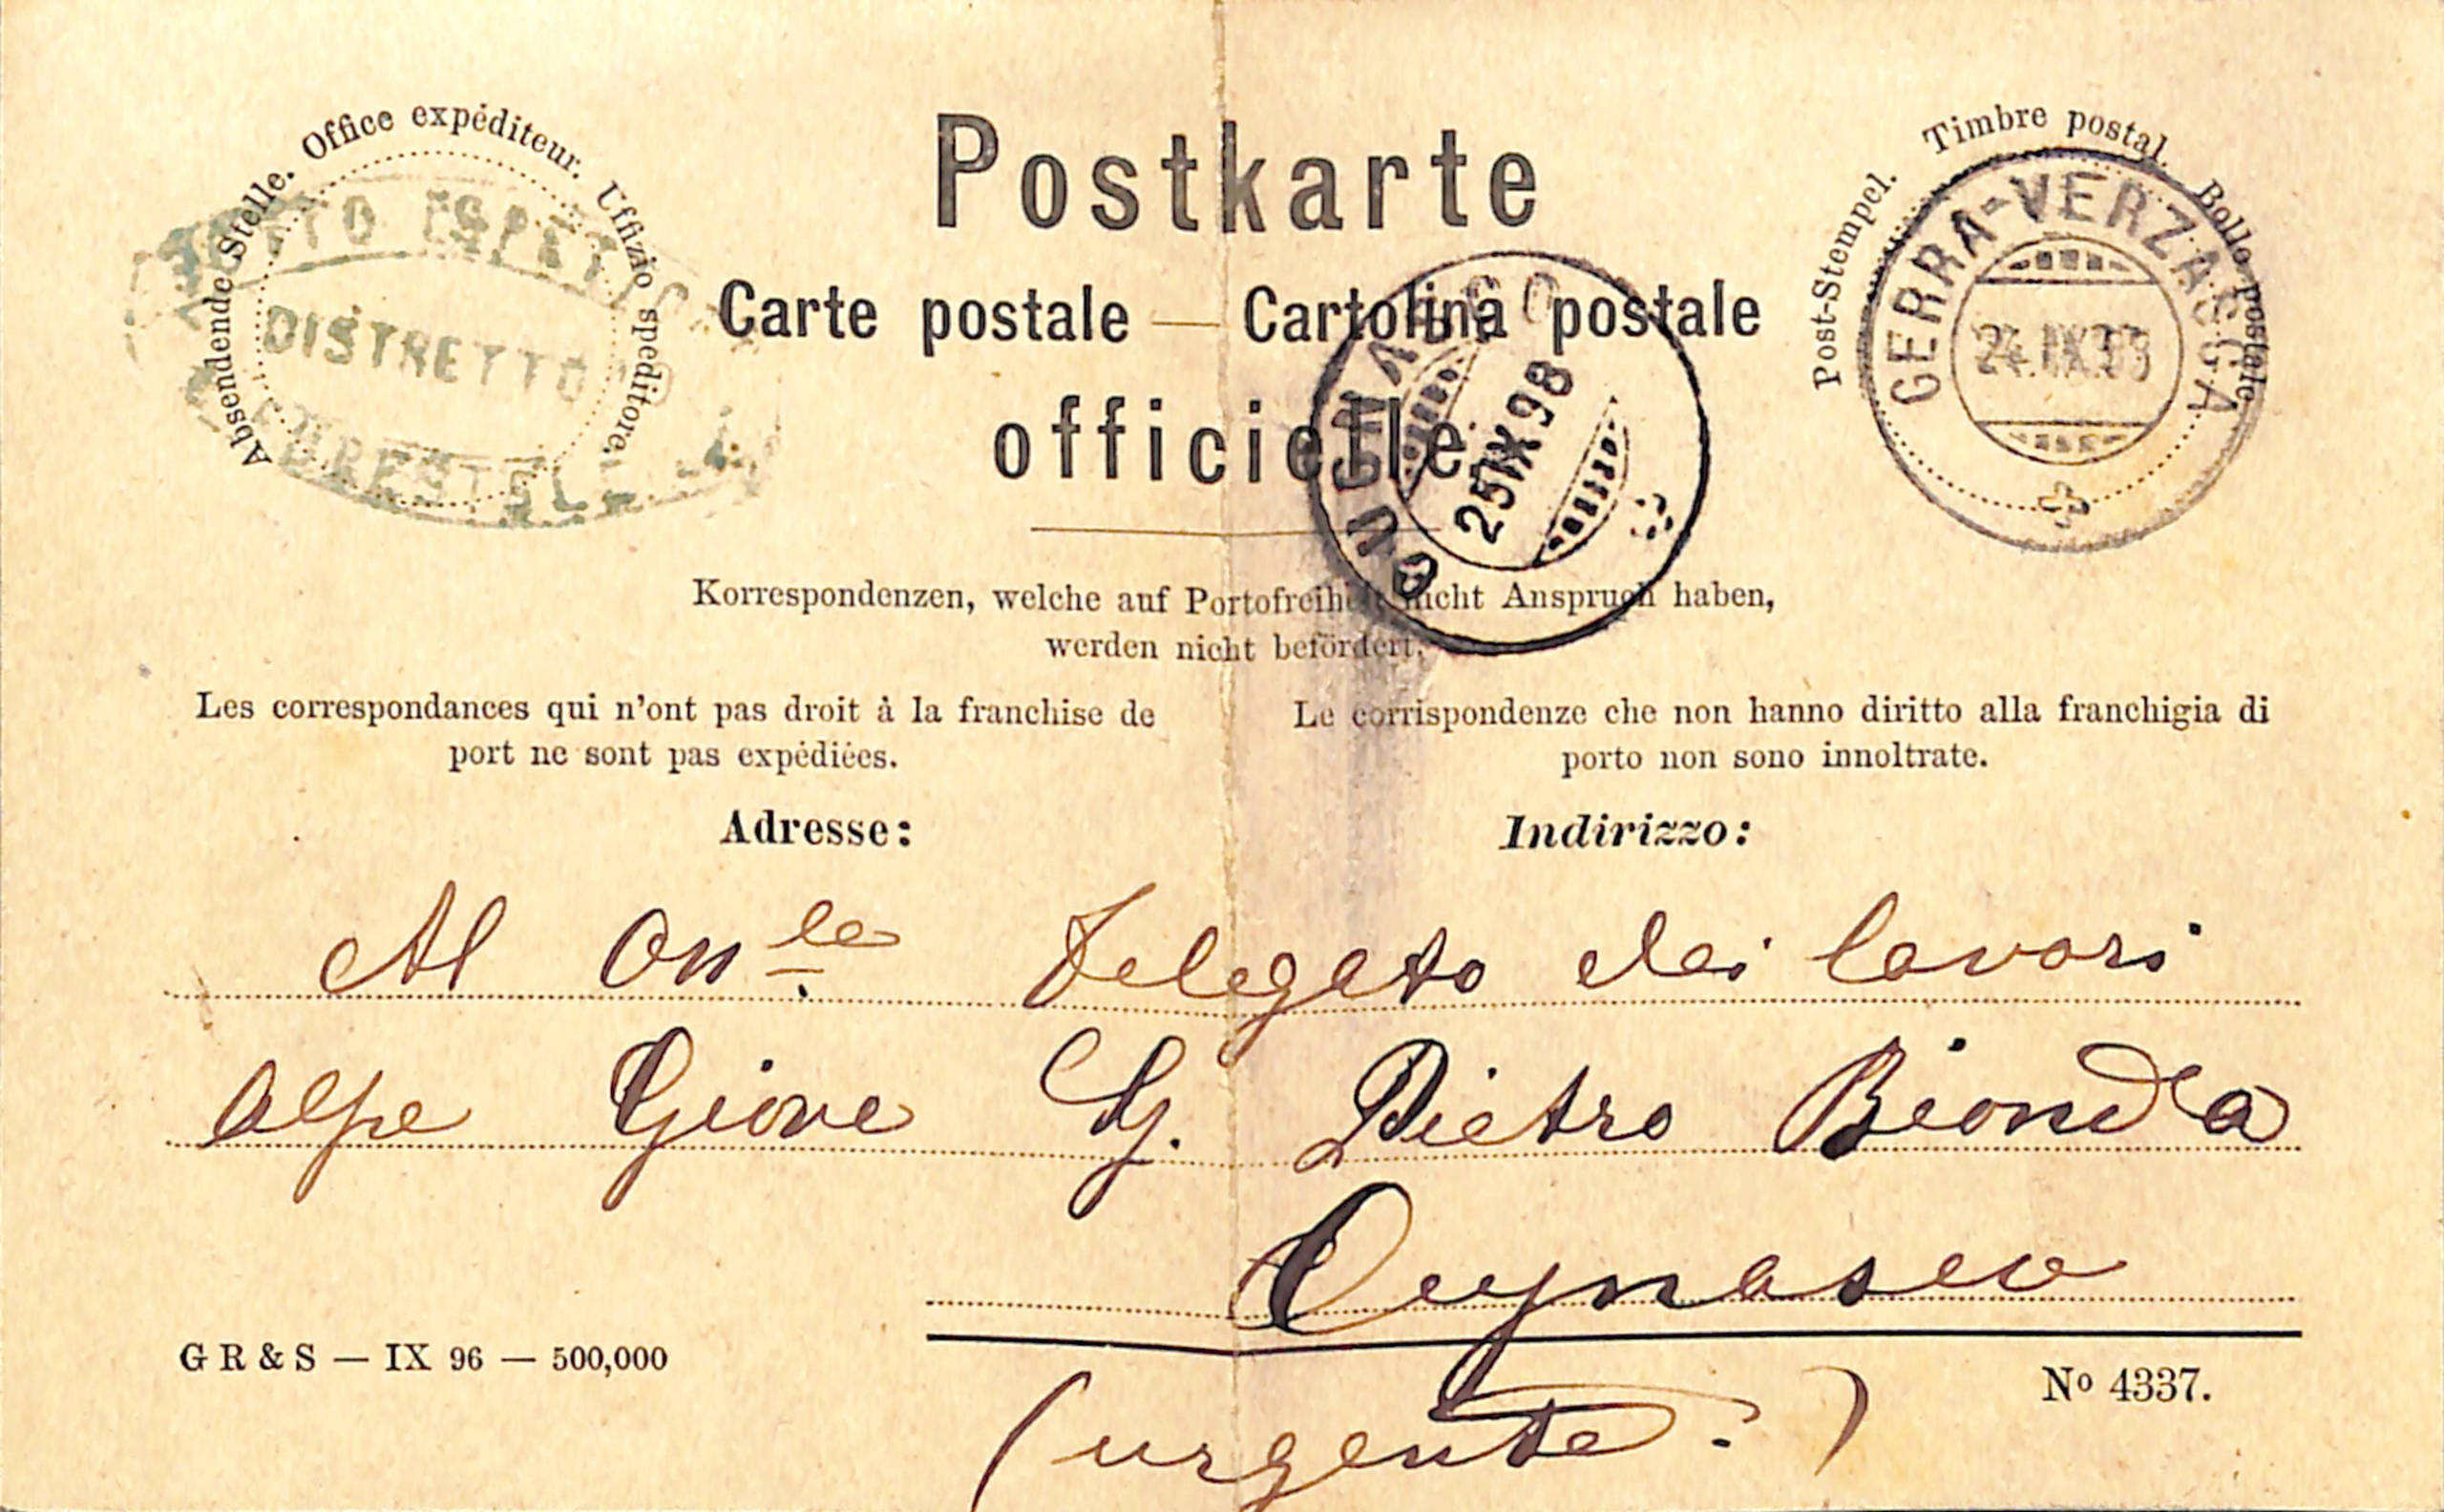 Absendende Stelle. Office expéditeur. Uffizio speditore.
DISTRETTO
Postkarte
Carte postale — Cartolina postale
officielle
Post-Stempel. Timbre postal. Bollo postale.
GERRA-VERZASCA
24.IX.98
CUGNASCO
25 IX 98
Korrespondenzen, welche auf Portofreiheit nicht Anspruch haben,
werden nicht befördert.
Les correspondances qui n'ont pas droit à la franchise de
port ne sont pas expédiées.
Le corrispondenze che non hanno diritto alla franchigia di
porto non sono innoltrate.
Adresse:
Indirizzo:
Al On.le Delegato dei lavori
alpe Giove Sg. Pietro Bionda
Cugnasco
(urgente.)
G R & S — IX 96 — 500,000
No 4337.